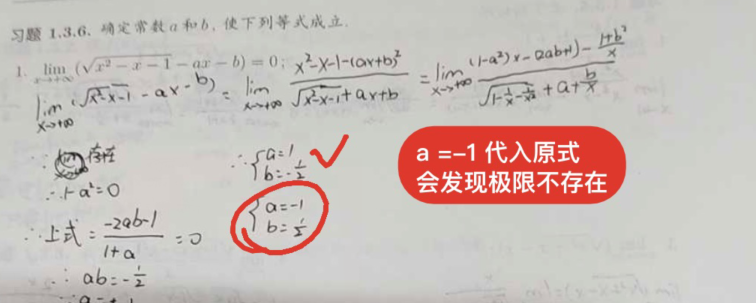 习题 1.3.6. 确定常数 a 和 b, 使下列等式成立.
1. lim_{x→+∞} (√(x²−x−1) − ax − b) = 0;
lim_{x→+∞} (√(x²-x-1) - ax - b) = lim_{x→+∞} (x²-x-1-(ax+b)²)/(√(x²-x-1)+ax+b) = lim_{x→+∞} ((1-a²)x-(2ab+1)-(1+b²)/x)/(√(1-1/x-1/x²)+a+b/x)
∵ 存在
∴ 1-a²=0
∴ 上式 = (-2ab-1)/(1+a) = 0
∴ ab=-1/2
∴ { a=1 b=-1/2
{ a=-1 b=1/2
a =–1 代入原式
会发现极限不存在